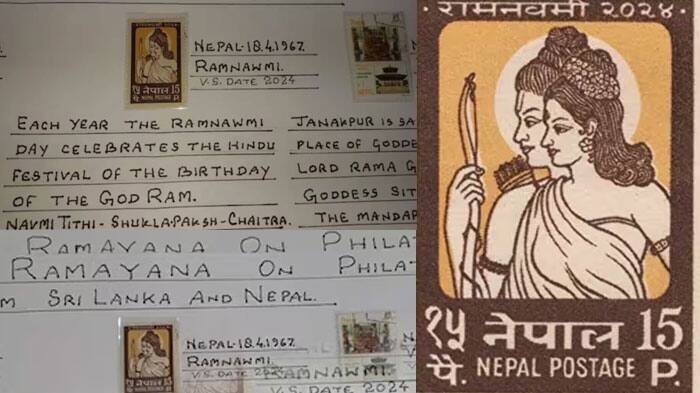 NEPAL-18.4.1967.
RAMNAWMI.
V.S. DATE 2024
नेपाल 15
EACH YEAR THE RAMNAWMI
DAY CELEBRATES THE HINDU
FESTIVAL OF THE BIRTHDAY
OF THE GOD RAM.
NAVMI TITHI-SHUKLA-PAKSH-CHAITRA.
JANAKPUR IS SA
PLACE OF GODDE
LORD RAMA G
GODDESS SIT
THE MANDAP
RAMAYANA ON PHILAT
RAMAYANA ON PHILAT
M SRI LANKA AND NEPAL.
NEPAL-18.4.1967.
RAMNAWMI.
V.S. DATE
RAMNAWMI.
V.S. DATE 2024
रामनवमी २०२४
१५ नेपाल 15
पै. NEPAL POSTAGE P.